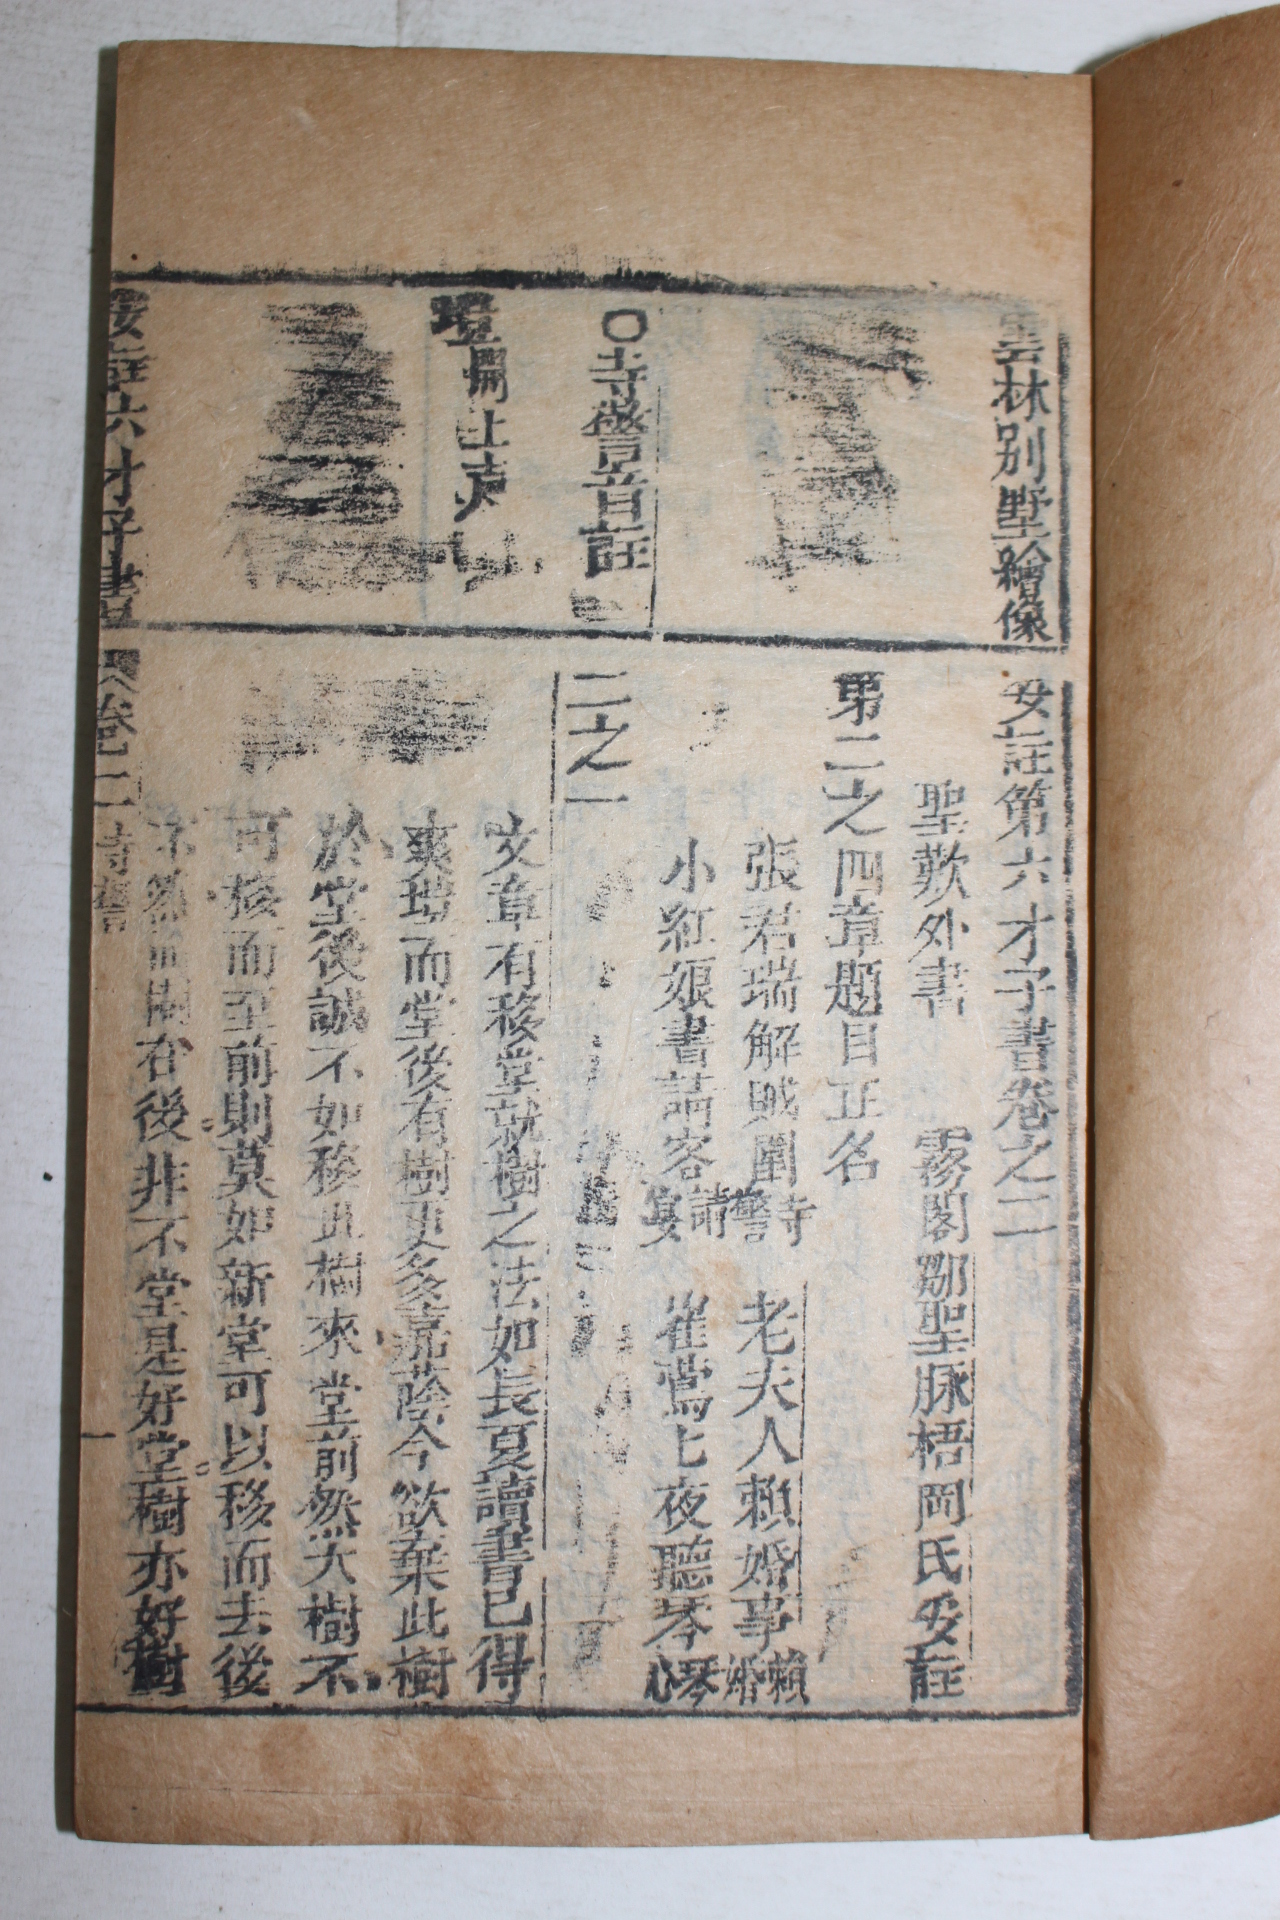 雲林别墅繪像
妥註第六才子書卷之二
聖歎外書 霧閣鄒聖脉梧岡氏妥註
第二之四章題目正名
張君瑞解賊圍 寺警 老夫人賴婚事 賴婚
小紅娘書請客 請宴 崔鶯鶯夜聽琴 琴心
〇寺警音註
二之一
文章有移堂就樹之法如長夏讀書已得
爽塏而堂後有樹更多嘉蔭今欲棄此樹
於堂後誠不如移此樹來堂前然大樹不
可移而至前則莫如新堂可以移而去後
不然而樹在後非不堂是好堂樹亦好樹
妥註六才子書 卷二 寺警 一